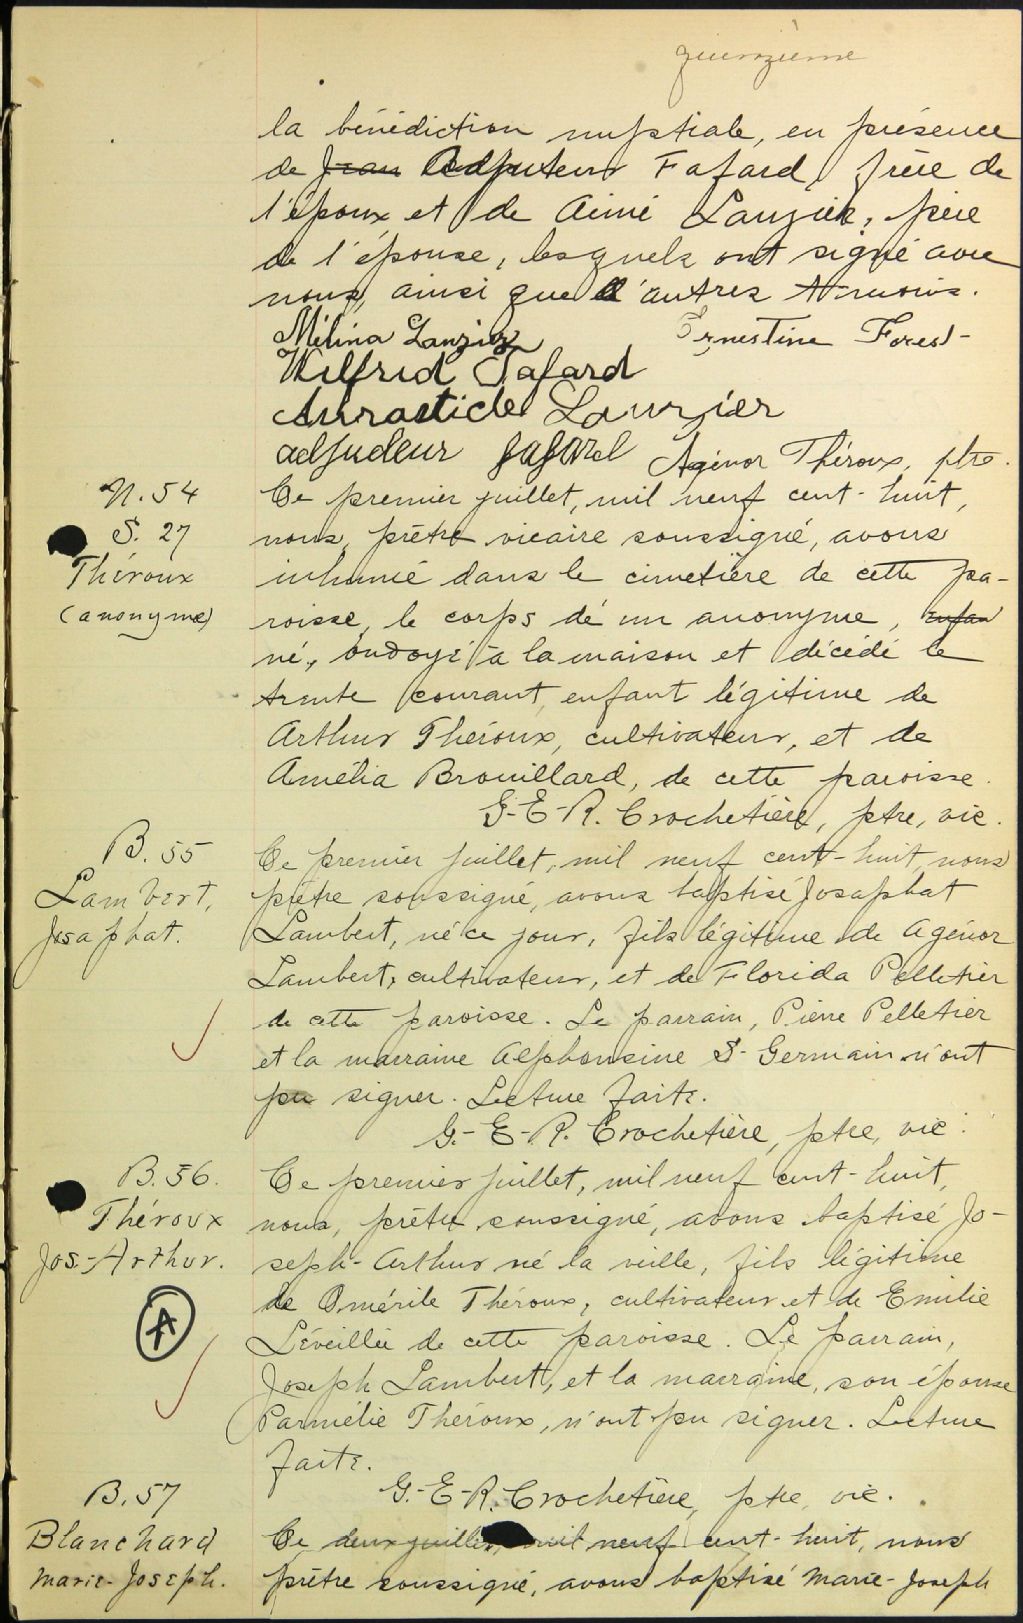 quinzième
la bénédiction nuptiale, en présence
de Jean Adjuteur Fafard, frère de
l'époux et de Aimé Lauzier, père
de l'épouse, lesquels ont signé avec
nous, ainsi que d'autres témoins.
Mélina Lauzier Ernestine Forest
Wilfrid Fafard
Lauzier
adjudeur fafard Agénor Théroux, ptre.
N. 54
S. 27
Théroux
(anonyme)
Ce premier juillet, mil neuf cent-huit,
nous, prêtre vicaire soussigné, avons
inhumé dans le cimetière de cette pa-
roisse, le corps de un anonyme, enfan
né, ondoyé à la maison et décédé le
trente courant, enfant légitime de
Arthur Théroux, cultivateur, et de
Amélia Brouillard, de cette paroisse.
G-E-R. Crochetière, ptre, vic.
B. 55
Lambert,
Josaphat.
Ce premier juillet, mil neuf cent-huit, nous
prêtre soussigné, avons baptisé Josaphat
Lambert, né ce jour, fils légitime de Agénor
Lambert, cultivateur, et de Florida Pelletier
de cette paroisse. Le parrain, Pierre Pelletier
et la marraine Alphonsine S-Germain n'ont
pu signer. Lecture faite.
G.-E-R. Crochetière, ptre, vic.
B. 56.
Théroux
Jos-Arthur.
A
Ce premier juillet, mil neuf cent-huit,
nous, prêtre soussigné, avons baptisé Jo-
seph-Arthur né la veille, fils légitime
de Omérile Théroux, cultivateur et de Emilie
Léveillée de cette paroisse. Le parrain,
Joseph Lambert, et la marraine, son épouse
Parmélie Théroux, n'ont pu signer. Lecture
faite.
G-E-R. Crochetière, ptre, vic.
B. 57
Blanchard
Marie-Joseph.
Ce deux juillet, mil neuf cent-huit, nous
prêtre soussigné, avons baptisé Marie-Joseph